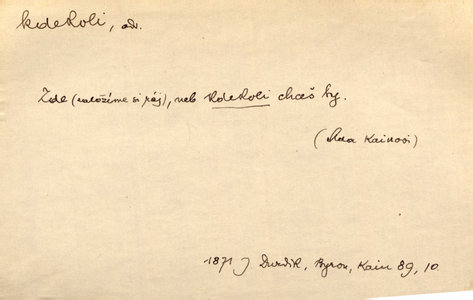 kdekoli, adv.
Zde (založíme si ráj), neb kdekoli chceš ty.
(Ada Kainovi)
1871 J Durdík, Byron, Kain 89, 10.